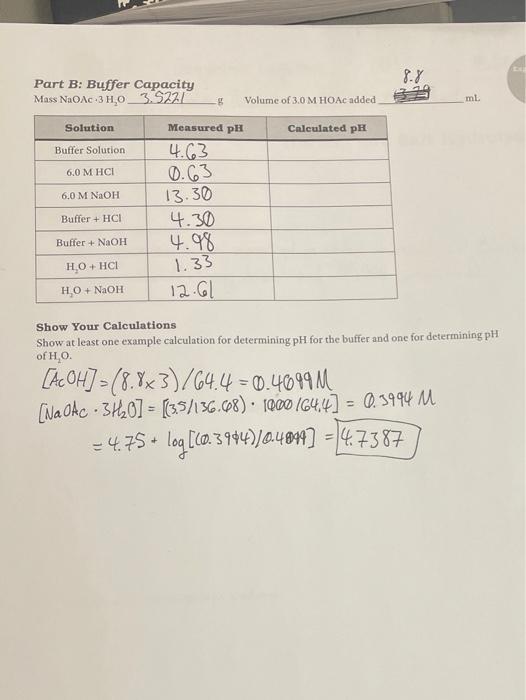 8.8
Part B: Buffer Capacity
Mass NaOAc·3 H₂O 3.5221 g Volume of 3.0 M HOAc added mL
Solution Measured pH Calculated pH
Buffer Solution 4.63
6.0 M HCl 0.63
6.0 M NaOH 13.30
Buffer + HCl 4.30
Buffer + NaOH 4.98
H₂O + HCl 1.33
H₂O + NaOH 12.61
Show Your Calculations
Show at least one example calculation for determining pH for the buffer and one for determining pH
of H₂O.
[AcOH] = (8.8 x 3)/64.4 = 0.4099 M
[NaOAc · 3H₂O] = [(3.5/136.08) · 1000/64.4] = 0.3994 M
= 4.75 + log[(0.3994)/0.4099] = 4.7387